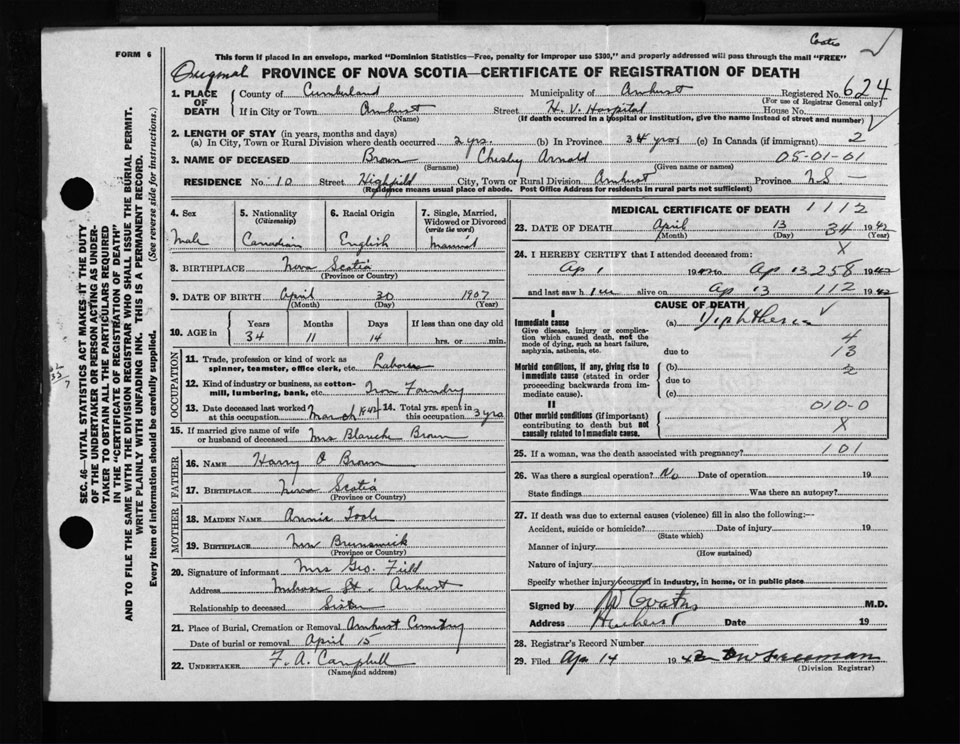 Coates
FORM 6
This form if placed in an envelope, marked "Dominion Statistics—Free, penalty for improper use $300," and properly addressed will pass through the mail "FREE"
Original PROVINCE OF NOVA SCOTIA—CERTIFICATE OF REGISTRATION OF DEATH
1. PLACE OF DEATH County of Cumberland Municipality of Amherst Registered No. 624
(For use of Registrar General only)
If in City or Town Amherst Street H. V. Hospital House No.
(Name) (If death occurred in a hospital or institution, give the name instead of street and number)
2. LENGTH OF STAY (in years, months and days)
(a) In City, Town or Rural Division where death occurred 2 yrs. (b) In Province 34 yrs (c) In Canada (if immigrant) 2
3. NAME OF DECEASED Brown Chesley Arnold 05-01-01
(Surname) (Given name or names)
RESIDENCE No. 10 Street Highfield City, Town or Rural Division Amherst Province NS —
(Residence means usual place of abode. Post Office Address for residents in rural parts not sufficient)
4. Sex Male
5. Nationality (Citizenship) Canadian
6. Racial Origin English
7. Single, Married, Widowed or Divorced (write the word) Married
8. BIRTHPLACE Nova Scotia
(Province or Country)
9. DATE OF BIRTH April 30 1907
(Month) (Day) (Year)
10. AGE in Years Months Days If less than one day old
34 11 14 hrs. or min.
OCCUPATION
11. Trade, profession or kind of work as spinner, teamster, office clerk, etc. Laborer
12. Kind of industry or business, as cotton-mill, lumbering, bank, etc. Iron Foundry
13. Date deceased last worked at this occupation March 1942 14. Total yrs. spent in this occupation 3 yrs
15. If married give name of wife or husband of deceased Mrs Blanche Brown
FATHER
16. NAME Harry O Brown
17. BIRTHPLACE Nova Scotia
(Province or Country)
MOTHER
18. MAIDEN NAME Annie
19. BIRTHPLACE New Brunswick
(Province or Country)
20. Signature of informant Mrs Geo. Field
Address Melrose St. Amherst
Relationship to deceased Sister
21. Place of Burial, Cremation or Removal Amherst Cemetery
Date of burial or removal April 15
22. UNDERTAKER F. A. Campbell
(Name and address)
MEDICAL CERTIFICATE OF DEATH 1112
23. DATE OF DEATH April 13 34 1942
(Month) (Day) (Year)
24. I HEREBY CERTIFY that I attended deceased from: X
Ap 1 1942 to Ap 13 258 1942
and last saw him alive on Ap 13 112 1942
CAUSE OF DEATH
I
Immediate cause (a) Diphtheria
Give disease, injury or complication which caused death, not the mode of dying, such as heart failure, asphyxia, asthenia, etc. due to 4
13
Morbid conditions, if any, giving rise to immediate cause (stated in order proceeding backwards from immediate cause). (b) 2
due to
(c)
II
Other morbid conditions (if important) contributing to death but not causally related to immediate cause. 010-0
X
25. If a woman, was the death associated with pregnancy? 101
26. Was there a surgical operation? No Date of operation 19
State findings Was there an autopsy?
27. If death was due to external causes (violence) fill in also the following:—
Accident, suicide or homicide? Date of injury 19
(State which)
Manner of injury
(How sustained)
Nature of injury
Specify whether injury occurred in industry, in home, or in public place
Signed by Coates M.D.
Address Amherst Date 19
28. Registrar's Record Number
29. Filed Apr 14 1942
(Division Registrar)
SEC. 46—VITAL STATISTICS ACT MAKES IT THE DUTY
OF THE UNDERTAKER OR PERSON ACTING AS UNDER-
TAKER TO OBTAIN ALL THE PARTICULARS REQUIRED
IN THE "CERTIFICATE OF REGISTRATION OF DEATH"
AND TO FILE THE SAME WITH THE DIVISION REGISTRAR WHO SHALL ISSUE THE BURIAL PERMIT.
WRITE PLAINLY WITH UNFADING INK. THIS IS A PERMANENT RECORD.
Every item of information should be carefully supplied. (See reverse side for instructions.)